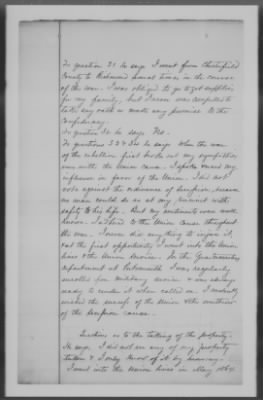 In question 31 he says I went from Chesterfield
County to Richmond several times in the course
of the war. I was obliged to go to get supplies
for my family, but I never was compelled to
take any oath or make any promise to the
Confederacy.
In question 32 he says No.
In questions 33 & 34 he says When the war
of the rebellion first broke out my sympathies
were with the Union cause. I spoke & used my
influence in favor of the Union. I did not
vote against the ordinance of Secession, because
no man could do so at my precinct with
safety to his life. But my sentiments were well
known. I adhered to the Union Cause throughout
the war. I never did anything to injure it,
& at the first opportunity I went into the Union
lines & the Union Service. In the Quartermasters
department at Portsmouth I was regularly
enrolled for military service & was always
ready to render it when called on. I constantly
wished the success of the Union & the overthrow
of the Secession cause.
Questions as to the taking of the property.
He says I did not see any of my property
taken & I only know of it by hearsay.
I went into the Union lines in May 1864